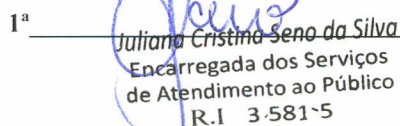 1ª
Juliana Cristina Seno da Silva
Encarregada dos Serviços
de Atendimento ao Público
R.I 3.581-5